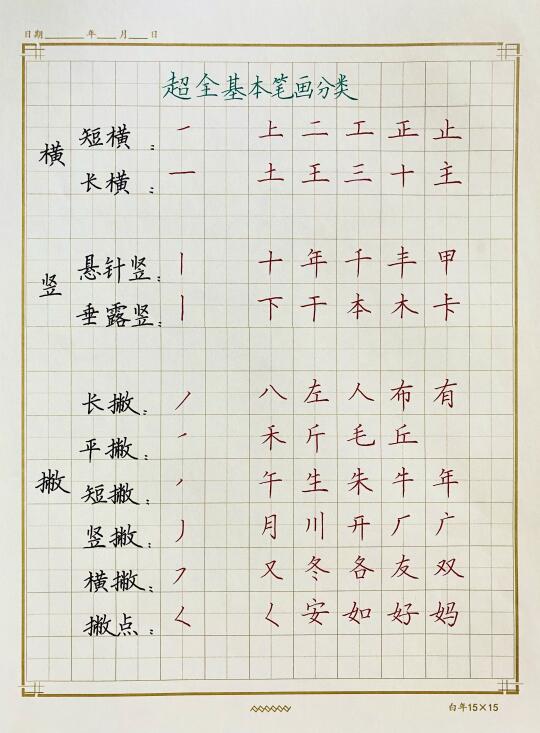 日期______年___月___日
超全基本笔画分类
横
短横： ㇀ 上 二 工 正 止
长横： 一 土 王 三 十 主
竖
悬针竖： 丨 十 年 千 丰 甲
垂露竖： 丨 下 干 本 木 卡
撇
长撇： ㇒ 八 左 人 布 有
平撇： ㇒ 禾 斤 毛 丘
短撇： ㇒ 午 生 朱 牛 年
竖撇： 丿 月 川 开 厂 广
横撇： ㇇ 又 冬 各 友 双
撇点： ㄑ ㄑ 安 如 好 妈
白年15×15